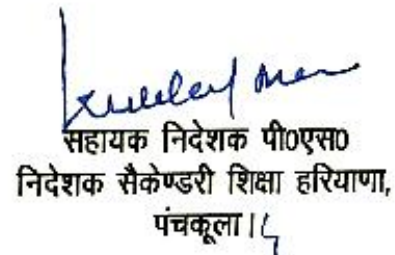 सहायक निदेशक पी०एस०
निदेशक सैकेण्डरी शिक्षा हरियाणा,
पंचकूला।